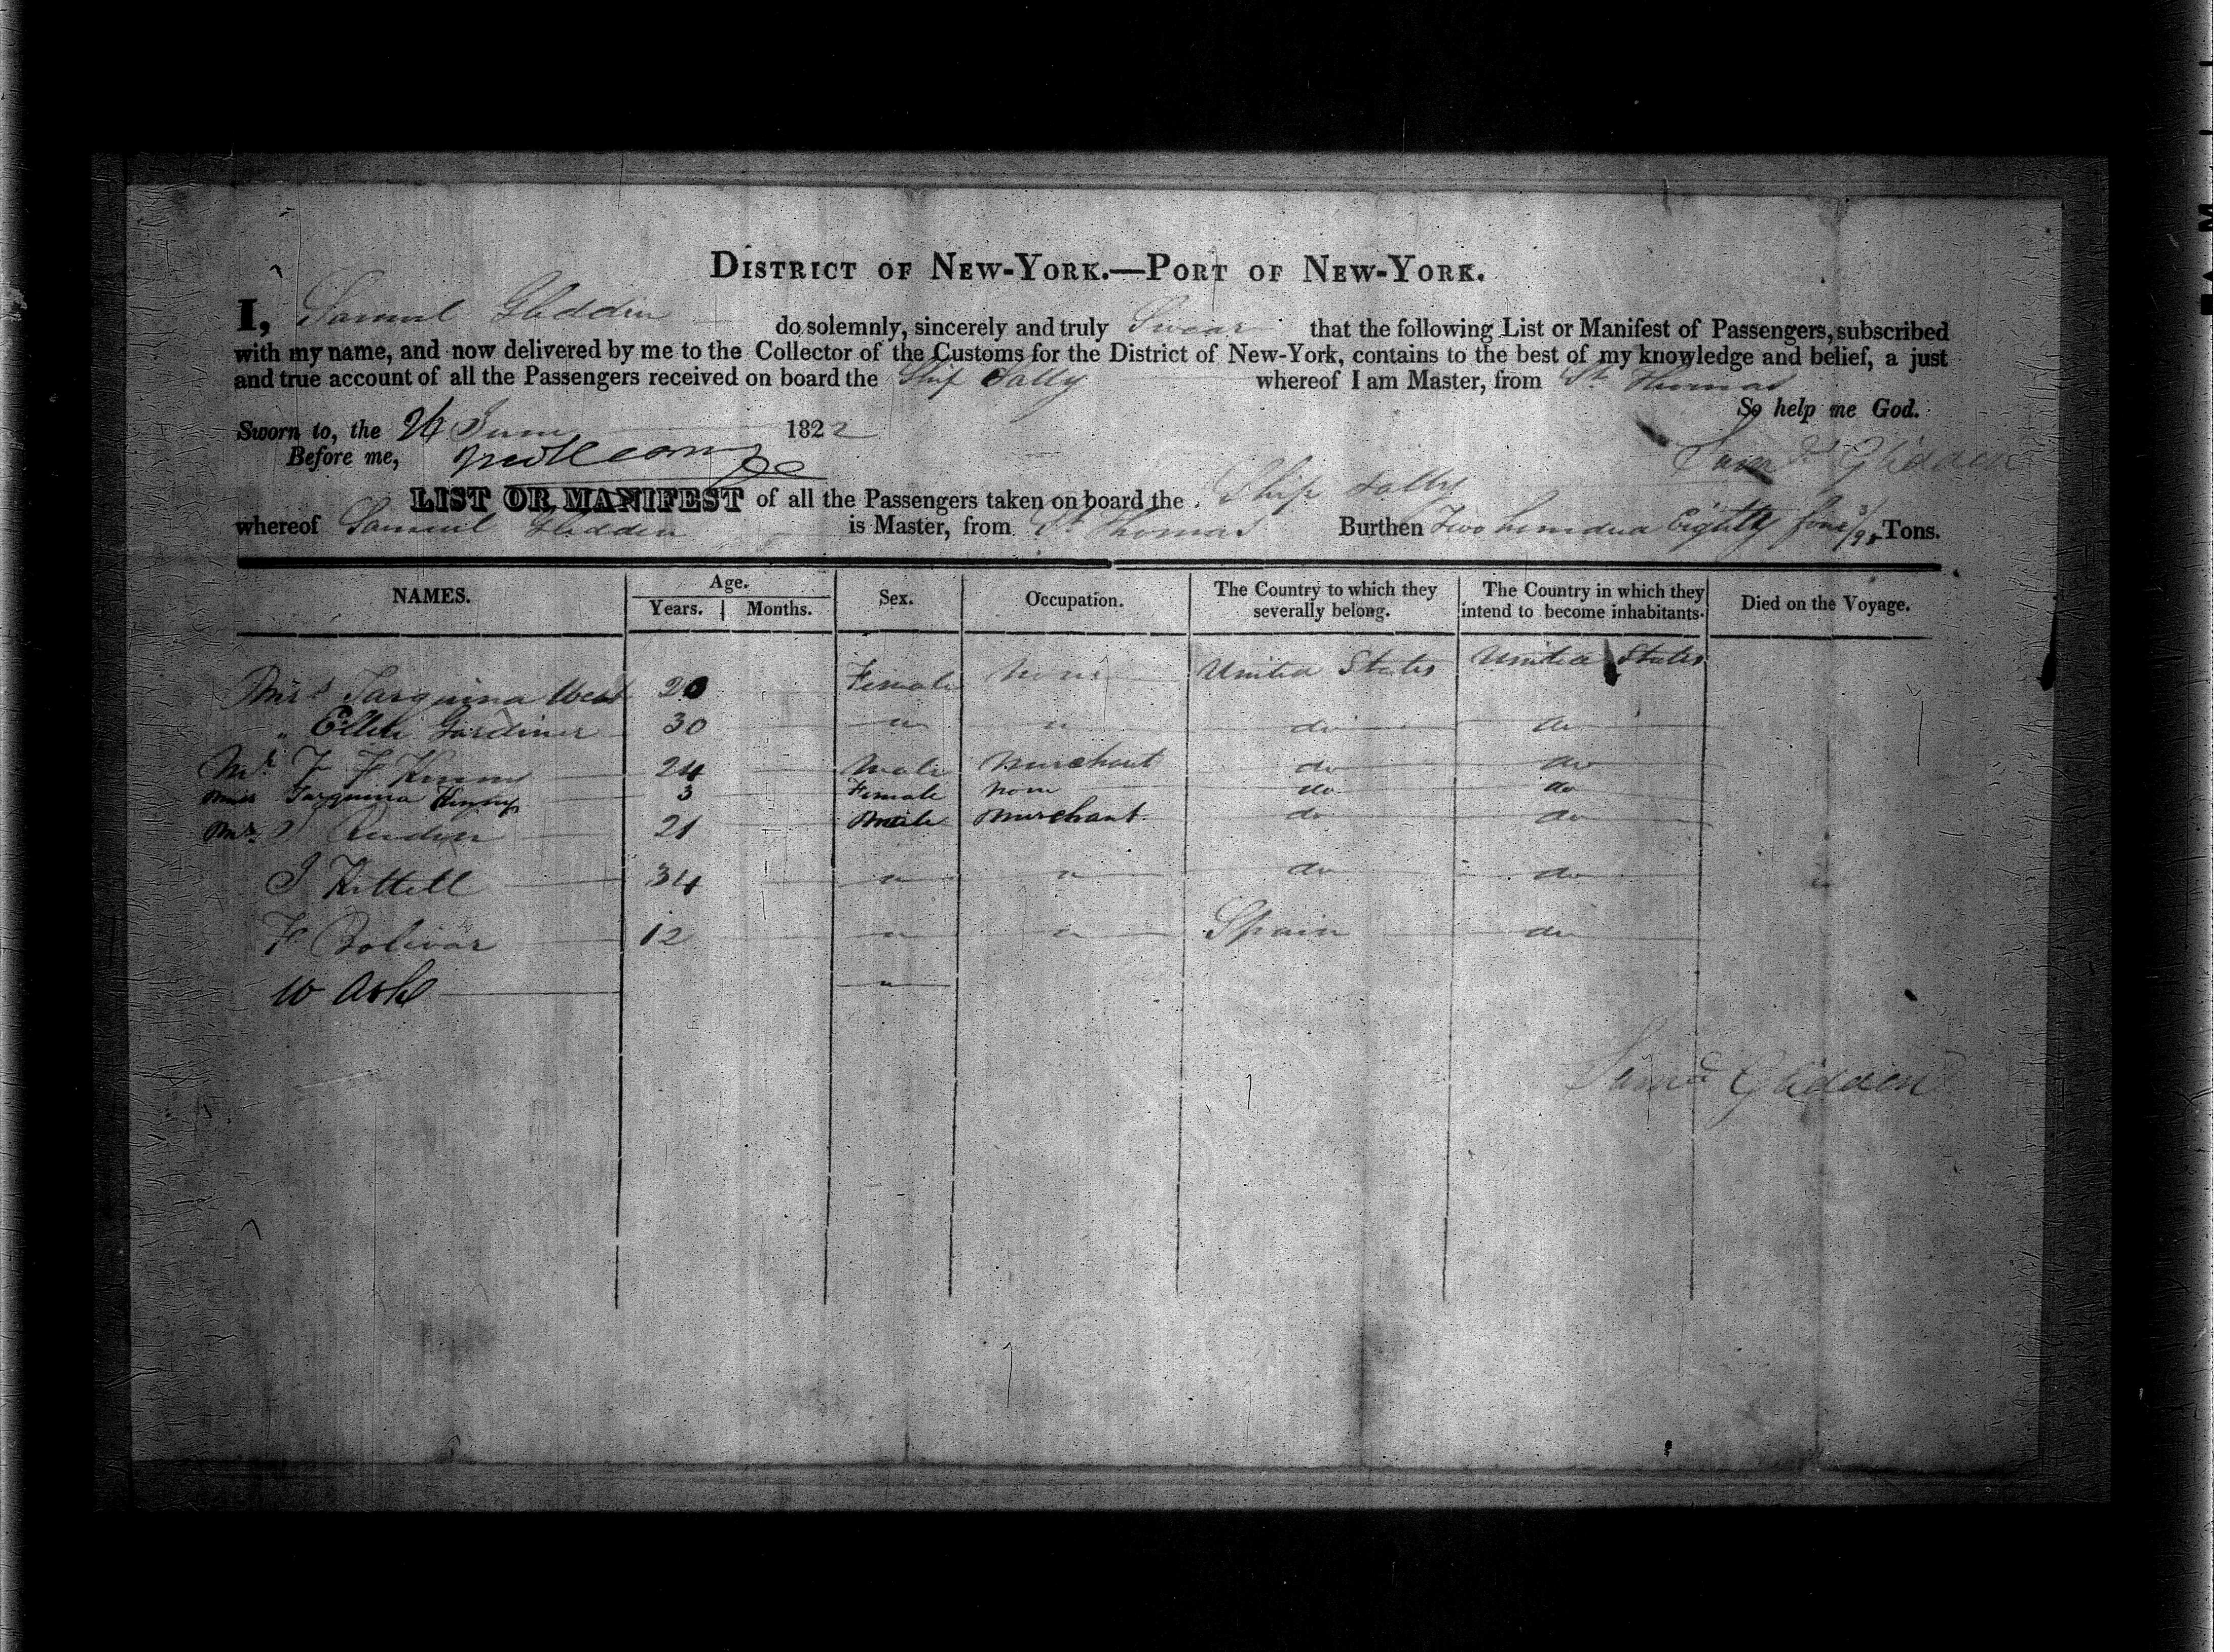 DISTRICT OF NEW-YORK.—PORT OF NEW-YORK.
I, Samuel Glidden do solemnly, sincerely and truly Swear that the following List or Manifest of Passengers, subscribed
with my name, and now delivered by me to the Collector of the Customs for the District of New-York, contains to the best of my knowledge and belief, a just
and true account of all the Passengers received on board the Ship Sally whereof I am Master, from St Thomas
So help me God.
Sworn to, the 26 June 1822
Before me,
Saml Glidden
LIST OR MANIFEST of all the Passengers taken on board the Ship Sally
whereof Samuel Glidden is Master, from St Thomas Burthen Two hundred Eighty five 3/95 Tons.
NAMES. Age. Sex. Occupation. The Country to which they severally belong. The Country in which they intend to become inhabitants. Died on the Voyage.
Years. Months.
Mrs Tarquina West 20 Female None United States United States
" Ellen Gardiner 30 " " do do
Mr. F Kenny 24 Male Merchant do do
Miss Tarquina Kenny 3 Female None do do
Mr. 21 Male Merchant do do
J Kittell 34 " " do do
F Bolivar 12 " " Spain do
W Ash "
Saml Glidden